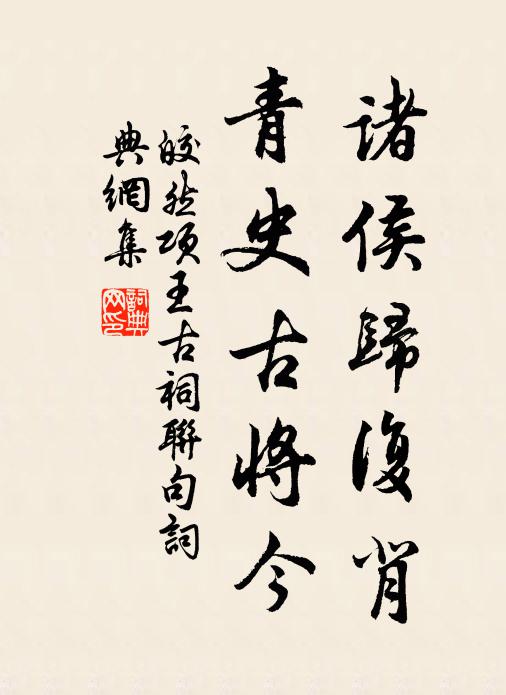 諸侯歸復背
青史古將今
皎然項王古祠聯句詞
典網集
詞典
网印